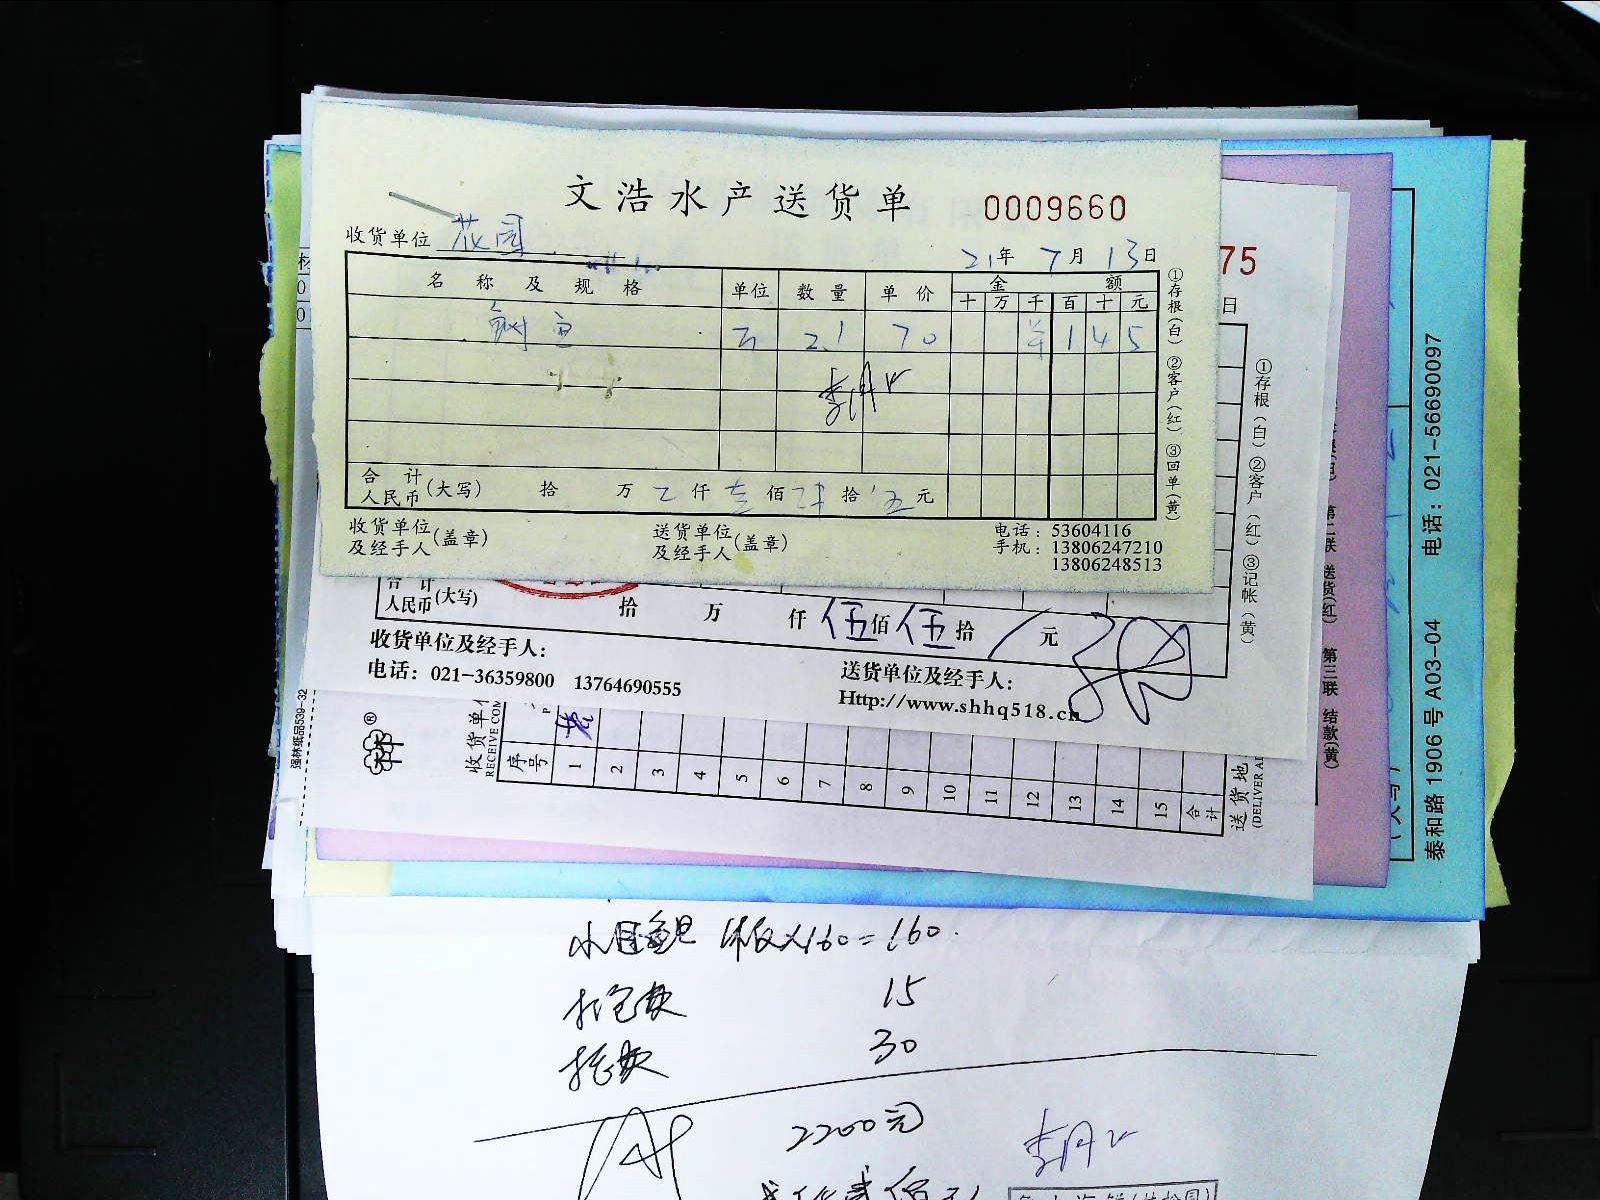 文浩水产送货单 0009660
收货单位 花园
21年 7月 13日
名称及规格 单位 数量 单价 金额
十 万 千 百 十 元
2.1 70 1 4 5
合计
人民币(大写) 拾 万 仟 壹佰 拾 伍元
收货单位
及经手人(盖章)
送货单位
及经手人(盖章)
电话：53604116
手机：13806247210
13806248513
①存根(白) ②客户(红) ③回单(黄)
75
日
①存根(白) ②客户(红) ③记帐(黄)
合计
人民币(大写) 拾 万 仟 伍佰 伍拾 元
收货单位及经手人：
电话：021-36359800 13764690555
送货单位及经手人：
Http://www.shhq518.cn
强林纸品539-32
收货单位
RECEIVE COM
序号 1 2 3 4 5 6 7 8 9 10 11 12 13 14 15 合计
送货地
(DELIVER AD
第二联 送货(红) 第三联 结款(黄)
泰和路1906号A03-04 电话：021-56690097
×160=160.
打包费 15
托费 30
2200元